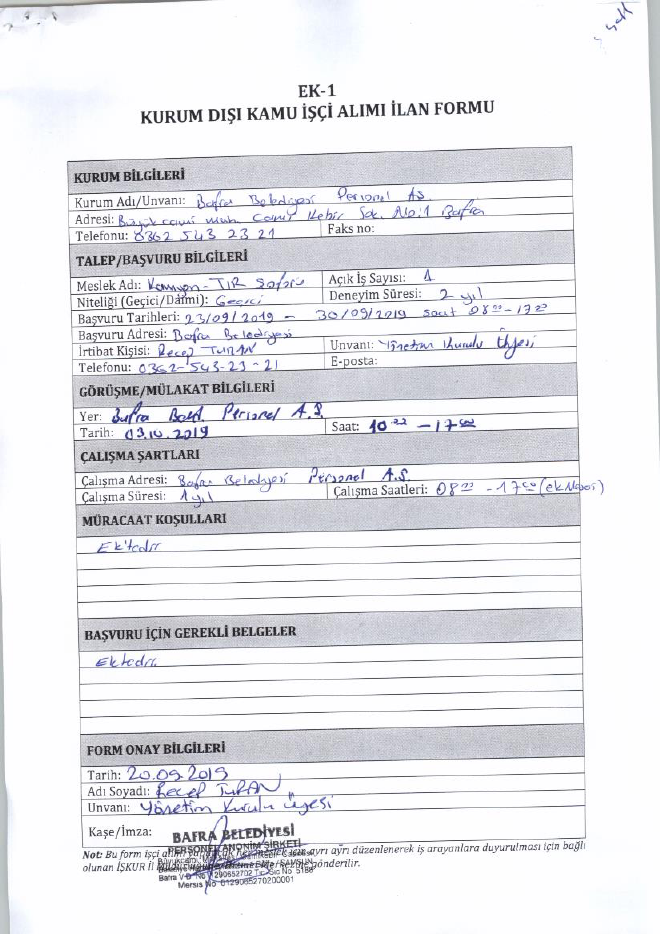 EK-1
KURUM DIŞI KAMU İŞÇİ ALIMI İLAN FORMU
KURUM BİLGİLERİ
Kurum Adı/Unvanı: Bafra Belediyesi Personel AŞ.
Adresi: Büyük cami mah. Camii Kebir Sok. No:1 Bafra
Telefonu: 0362 543 23 21 Faks no:
TALEP/BAŞVURU BİLGİLERİ
Meslek Adı: Kamyon-TIR Şoförü Açık İş Sayısı: 1
Niteliği (Geçici/Daimi): Geçici Deneyim Süresi: 2 yıl
Başvuru Tarihleri: 23/09/2019 - 30/09/2019 saat 08 00 - 17 00
Başvuru Adresi: Bafra Belediyesi
İrtibat Kişisi: Recep TURAN Unvanı: Yönetim Kurulu Üyesi
Telefonu: 0362-543-23-21 E-posta:
GÖRÜŞME/MÜLAKAT BİLGİLERİ
Yer: Bafra Beld. Personel A.Ş.
Tarih: 03.10.2019 Saat: 10 00 - 17 00
ÇALIŞMA ŞARTLARI
Çalışma Adresi: Bafra Belediyesi Personel A.Ş.
Çalışma Süresi: 1 yıl Çalışma Saatleri: 08 00 - 17 00
MÜRACAAT KOŞULLARI
Ek'tedir
BAŞVURU İÇİN GEREKLİ BELGELER
Ektedir.
FORM ONAY BİLGİLERİ
Tarih: 20.09.2019
Adı Soyadı: Recep TURAN
Unvanı: Yönetim Kurulu Üyesi
Kaşe/İmza: BAFRA BELEDİYESİ
PERSONEL ANONİM ŞİRKETİ
Not: Bu form işçi alımı ayrı ayrı düzenlenerek iş arayanlara duyurulması için bağlı
olunan İŞKUR İl gönderilir.
Mersis No